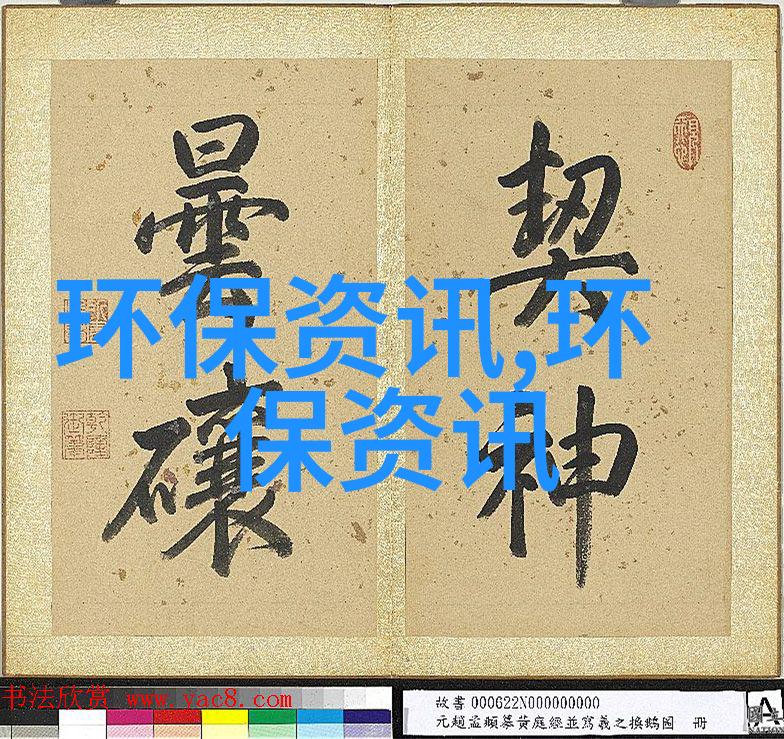 契神
曇
环保资讯,环
保资讯
书法欣赏 www.yac8.com
故書000622N000000000
元趙孟頫摹黃庭經並寫羲之換鵝圖 冊